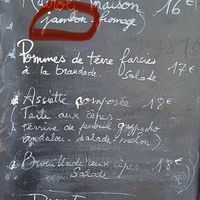 maison 16€
jambon-fromage
Pommes de terre farcies
à la brandade. Salade 17€
* Assiette composée 18€
(Tarte aux cèpes -
terrine de fenouil gazpacho
andalou - salade - melon).
Brouillade aux cèpes 18€
Salade